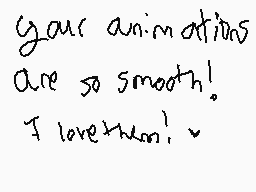 your animations
are so smooth!
I love them! ♥